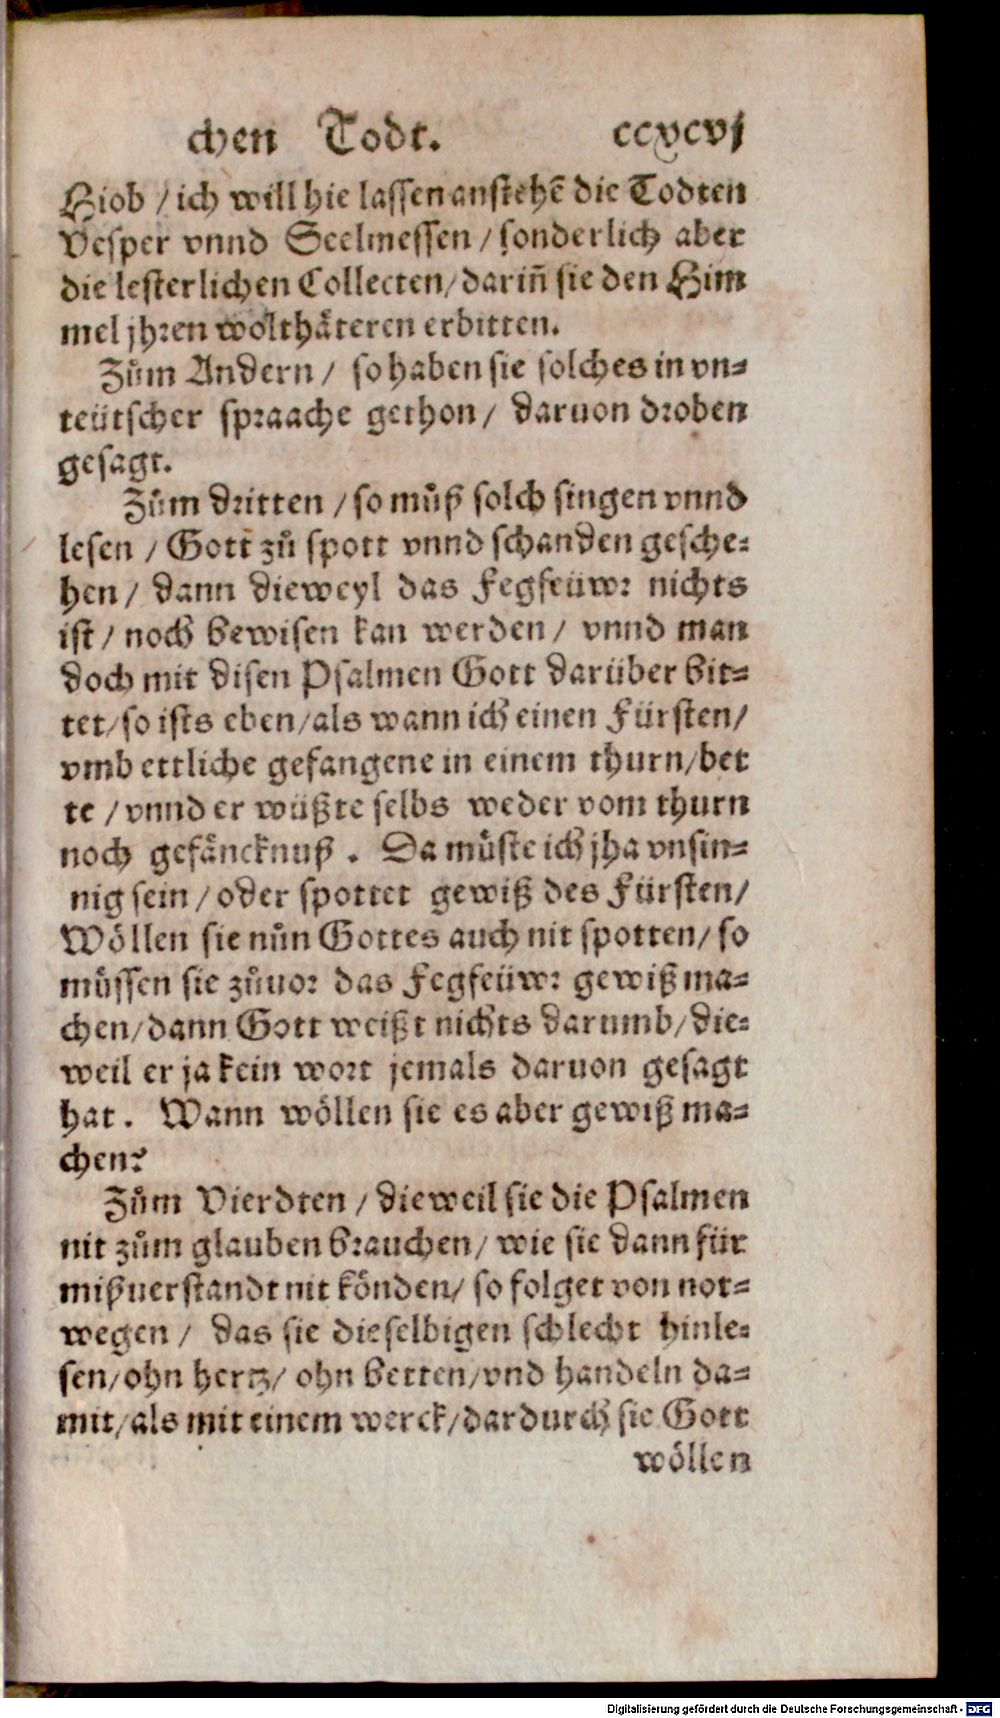 chen Todt. ccxcvj
Hiob / ich will hie lassen anstehē die Todten
Vesper vnnd Seelmessen / sonderlich aber
die lesterlichen Collecten / dariñ sie den Him
mel jhren wolthåteren erbitten.
Zům Andern / so haben sie solches in vn-
teütscher spraache gethon / daruon droben
gesagt.
Zům dritten / so můß solch singen vnnd
lesen / Gott zů spott vnnd schanden gesche-
hen / dann dieweyl das Fegfeüwr nichts
ist / noch bewisen kan werden / vnnd man
doch mit disen Psalmen Gott darüber bit-
tet / so ists eben / als wann ich einen Fürsten /
vmb ettliche gefangene in einem thurn / bet
te / vnnd er wüßte selbs weder vom thurn
noch gefåncknuß . Da müste ich jha vnsin-
nig sein / oder spottet gewiß des Fürsten /
Wöllen sie nůn Gottes auch nit spotten / so
müssen sie zůuor das Fegfeüwr gewiß ma-
chen / dann Gott weißt nichts darumb / die-
weil er ja kein wort jemals daruon gesagt
hat . Wann wöllen sie es aber gewiß ma-
chen?
Zům Vierdten / dieweil sie die Psalmen
nit zům glauben brauchen / wie sie dann für
mißuerstandt nit könden / so folget von not-
wegen / das sie dieselbigen schlecht hinle-
sen / ohn hertz / ohn betten / vnd handeln da-
mit / als mit einem werck / dardurch sie Gott
wöllen
Digitalisierung gefördert durch die Deutsche Forschungsgemeinschaft - DFG